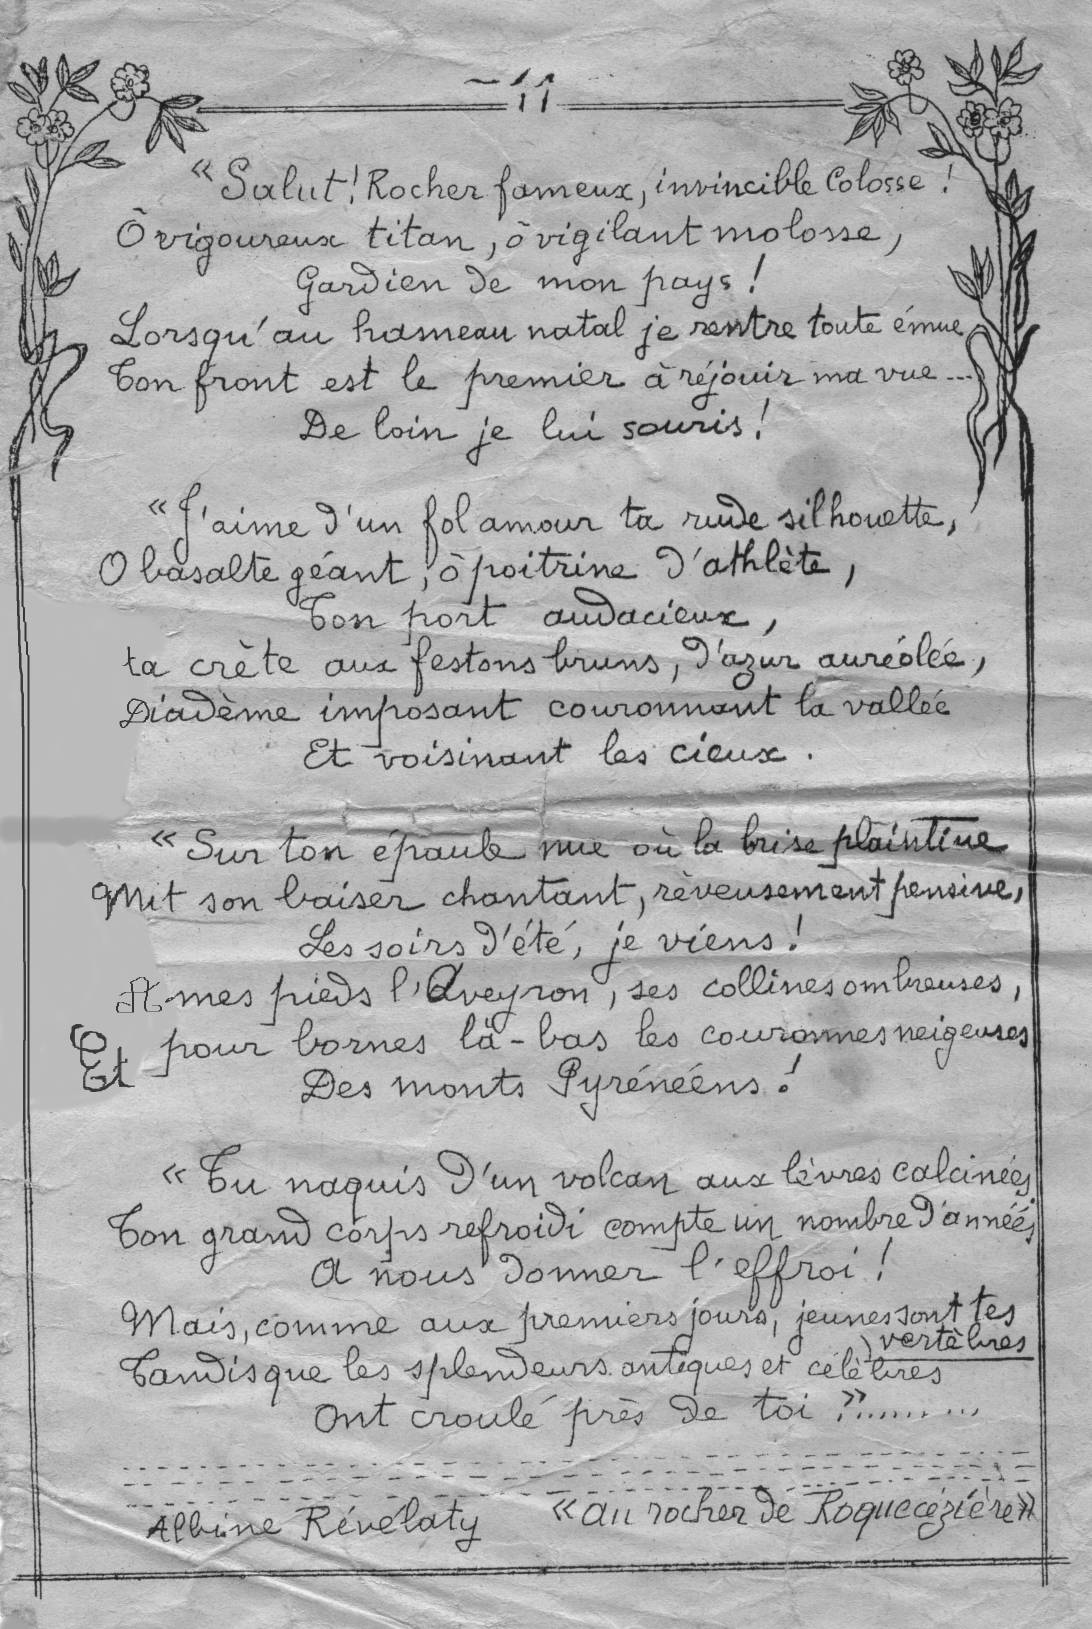 - 11
« Salut ! Rocher fameux, invincible Colosse !
Ô vigoureux titan, ô vigilant molosse,
Gardien de mon pays !
Lorsqu'au hameau natal je rentre toute émue
Ton front est le premier à réjouir ma vue ...
De loin je lui souris !
« J'aime d'un fol amour ta rude silhouette,
O basalte géant, ô poitrine d'athlète,
Ton port audacieux,
ta crète aux festons bruns, d'azur auréolée,
Diadème imposant couronnant la vallée
Et voisinant les cieux.
« Sur ton épaule nue où la brise plaintive
Mit son baiser chantant, rèveusement pensive,
Les soirs d'été, je viens !
A mes pieds l'Aveyron, ses collines ombreuses,
Et pour bornes là-bas les couronnes neigeuses
Des monts Pyrénéens !
« Tu naquis d'un volcan aux lèvres calcinées,
Ton grand corps refroidi compte un nombre d'années
A nous donner l'effroi !
Mais, comme aux premiers jours, jeunes sont tes
vertèbres
Tandis que les splendeurs antiques et célèbres
Ont croulé près de toi ! » ........
Albine Révélaty « Au rocher de Roquecézière »